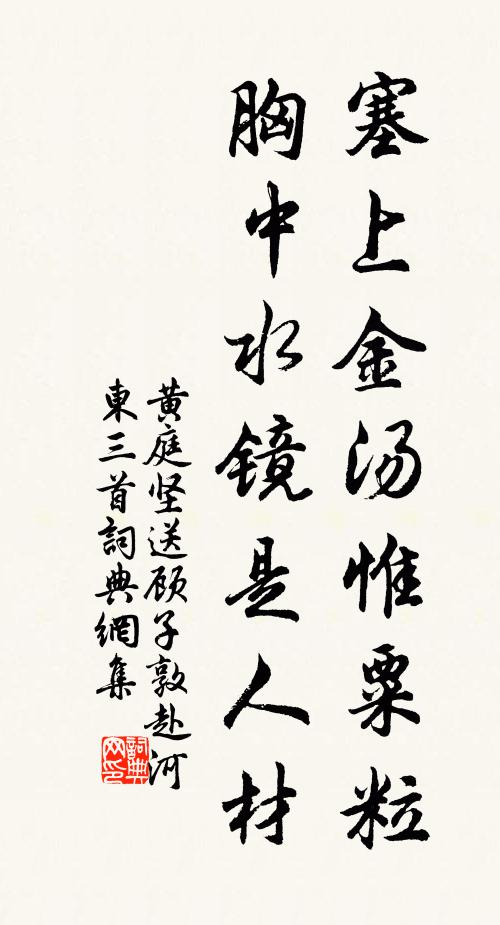 塞上金汤惟粟粒
胸中水镜是人材
黄庭坚送顾子敦赴河
東三首詞典網集
詞典
网印